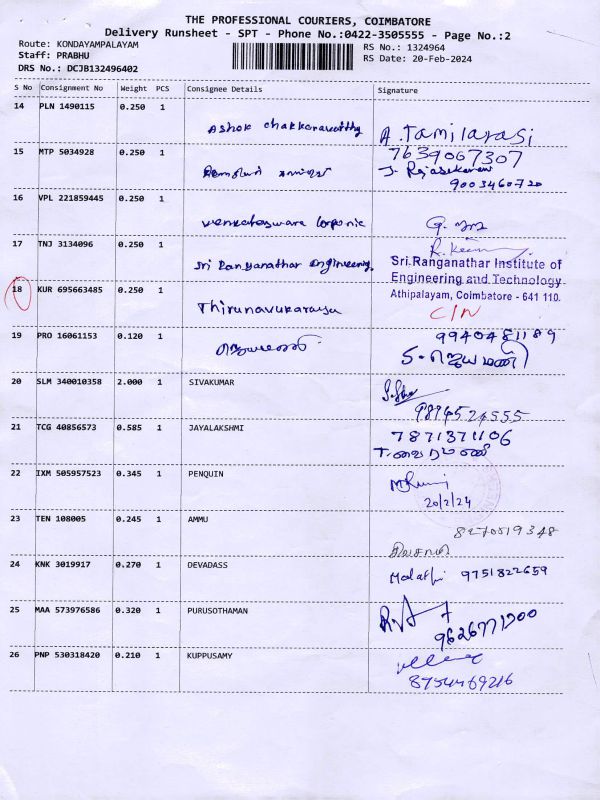 THE PROFESSIONAL COURIERS, COIMBATORE
Delivery Runsheet - SPT - Phone No.:0422-3505555 - Page No.:2
Route: KONDAYAMPALAYAM
Staff: PRABHU
DRS No.: DCJB132496402
RS No.: 1324964
RS Date: 20-Feb-2024
S No Consignment No Weight PCS Consignee Details Signature
14 PLN 1490115 0.250 1
Ashok chakkaravarthy A. Tamilarasi
7639067307
15 MTP 5034928 0.250 1
J. Rajasekaran
9003460720
16 VPL 221859445 0.250 1
Venkateswara
17 TNJ 3134096 0.250 1
Sri Ranganathar Engineering
Sri.Ranganathar Institute of
Engineering and Technology
Athipalayam, Coimbatore - 641 110.
18 KUR 695663485 0.250 1
Thirunavukarasu
C/N
19 PRO 16061153 0.120 1
9940481189
ச. ஜெயமணி
20 SLM 340010358 2.000 1 SIVAKUMAR
21 TCG 40856573 0.585 1 JAYALAKSHMI
7871371106
22 IXM 505957523 0.345 1 PENQUIN
20/2/24
23 TEN 108005 0.245 1 AMMU
8270519348
24 KNK 3019917 0.270 1 DEVADASS
Malathi 9751822659
25 MAA 573976586 0.320 1 PURUSOTHAMAN
9626771700
26 PNP 530318420 0.210 1 KUPPUSAMY
8754469216